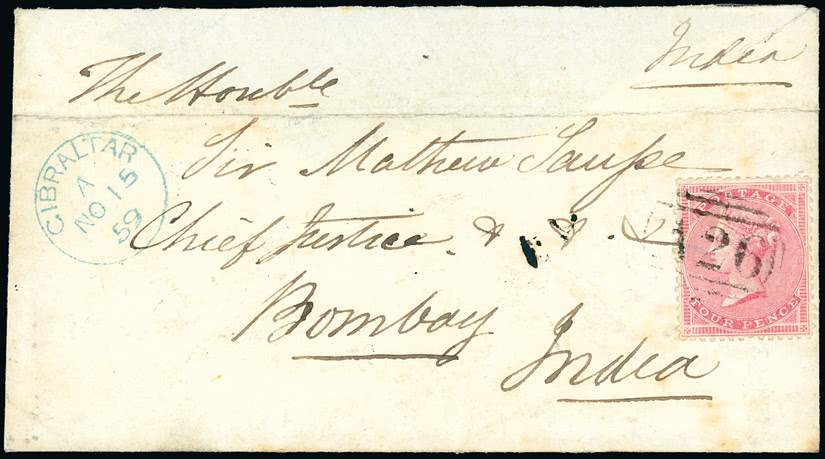 India
The Honble
Sir Mathew Sausse
Chief Justice. & &. &
Bombay
India
GIBRALTAR
A
NO 15
59
POSTAGE
26
FOUR PENCE